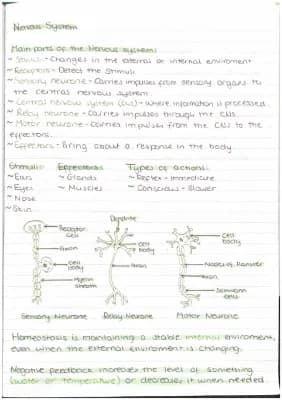 Nervous System
Main parts of the Nervous system:
~ Stimuli - Changes in the external or internal enviroment
~ Receptors - Detect the Stimuli
~ Sensory neurone - Carries impulses from sensory organs to
the central nervous system.
~ Central nervous system (CNS) - Where information is processed.
~ Relay neurone - Carries impulses through the CNS.
~ Motor neurone - Carries impulses from the CNS to the
effectors.
~ Effectors - Bring about a response in the body.
Stimuli Effectors Types of actions:
~ Ears ~ Glands ~ Reflex - Immediate
~ Eyes ~ Muscles ~ Conscious - Slower
~ Nose
~ Skin
Receptor cell
Axon
Cell body
Myelin sheath
Dendrite
Cell body
Axon
Cell body
Nodes of Ranvier
Axon
Schwann cells
Sensory Neurone Relay Neurone Motor Neurone
Homeostasis is maintaining a stable internal enviroment,
even when the external enviroment is changing.
Negative feedback increases the level of something
(water or temperature) or decreases it when needed